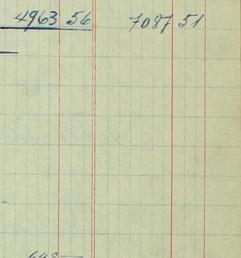 4963 56 7087 51